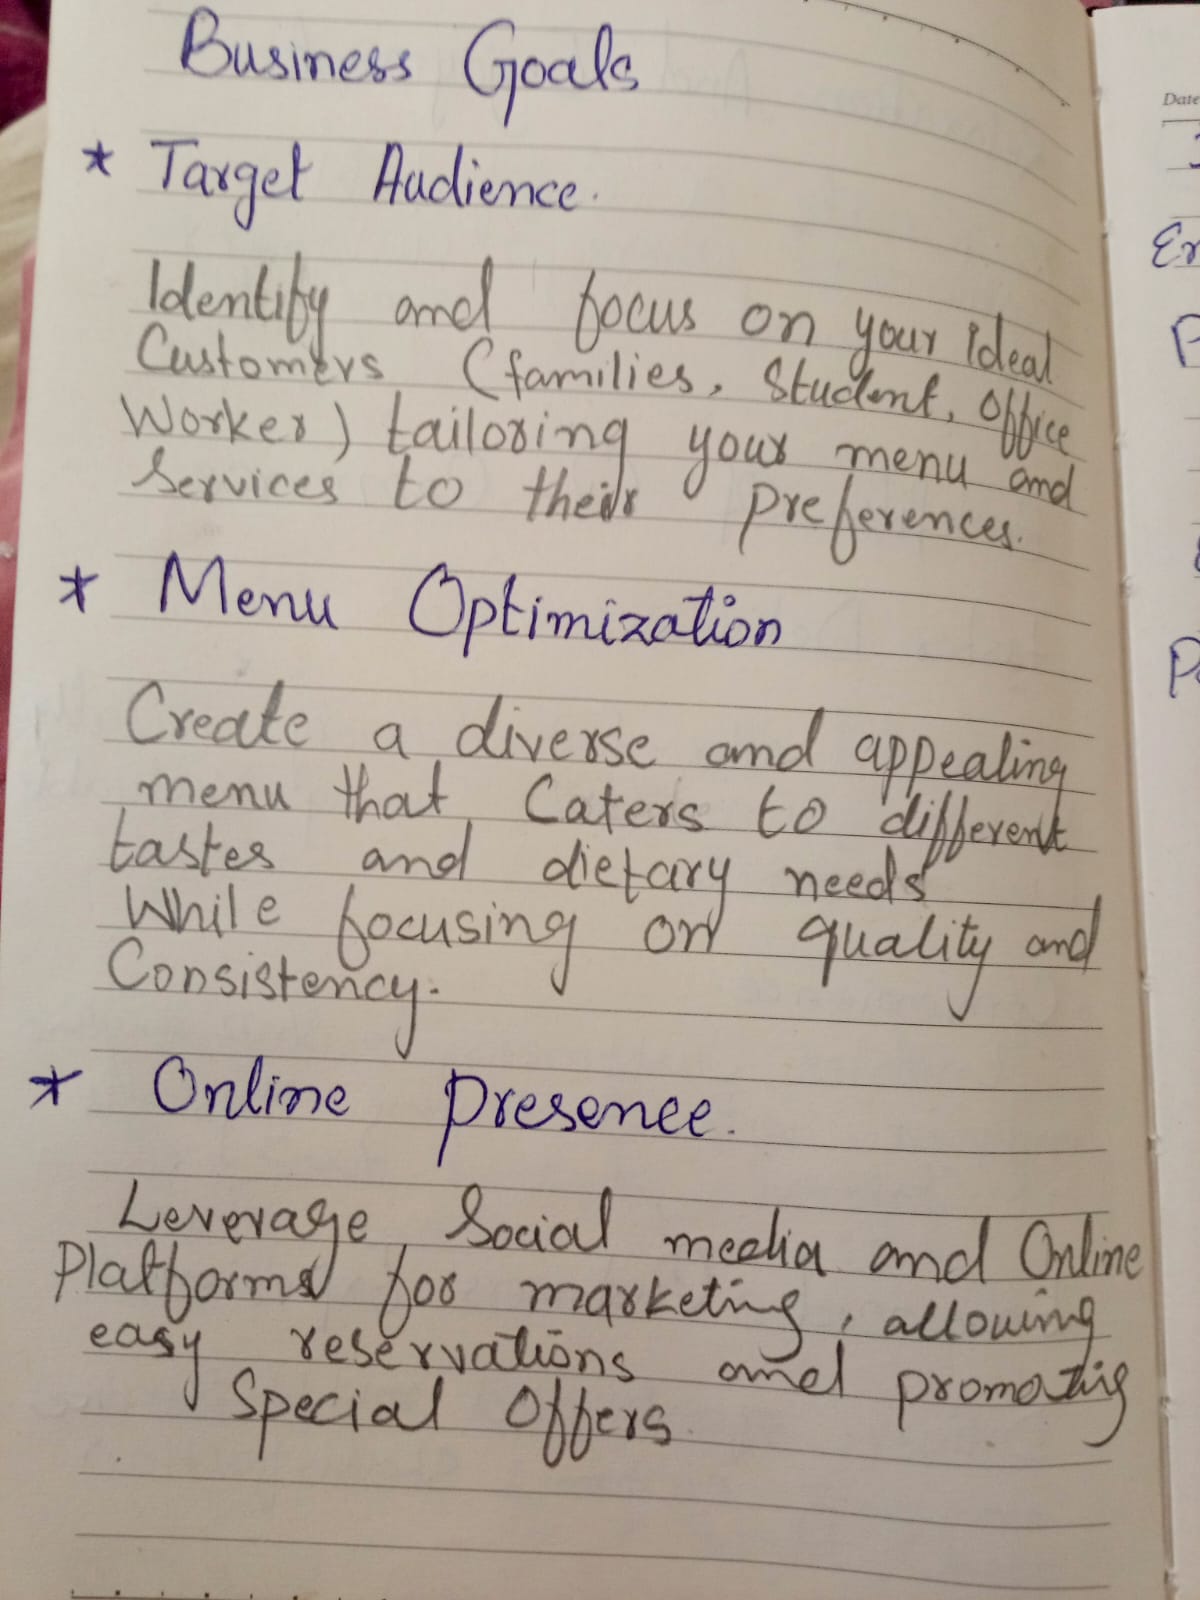 Business Goals
* Target Audience.
Identify and focus on your ideal
Customers (families, Student, Office
Worker) tailoring your menu and
Services to their preferences.
* Menu Optimization
Create a diverse and appealing
menu that Caters to different
tastes and dietary needs
While focusing on quality and
Consistency.
* Online Presence.
Leverage Social media and Online
Platforms for marketing, allowing
easy reservations and promoting
Special Offers
Date